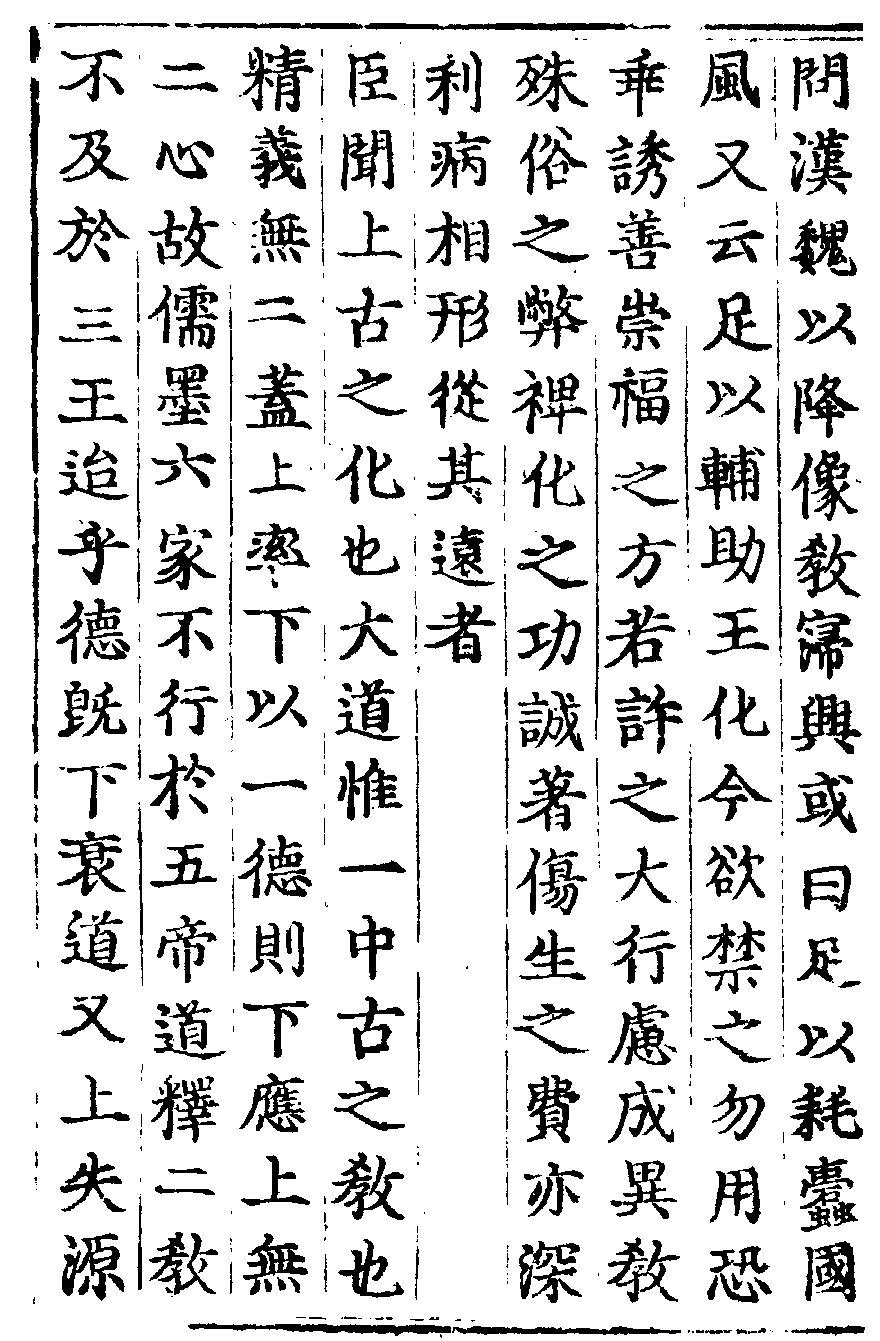 問漢魏以降像教寖興或曰足以耗蠹國
風又云足以輔助王化今欲禁之勿用恐
乖誘善崇福之方若許之大行慮成異教
殊俗之弊裨化之功誠著傷生之費亦深
利病相形從其遠者
臣聞上古之化也大道惟一中古之教也
精義無二蓋上率下以一德則下應上無
二心故儒墨六家不行於五帝道釋二教
不及於三王迨乎德既下衰道又上失源